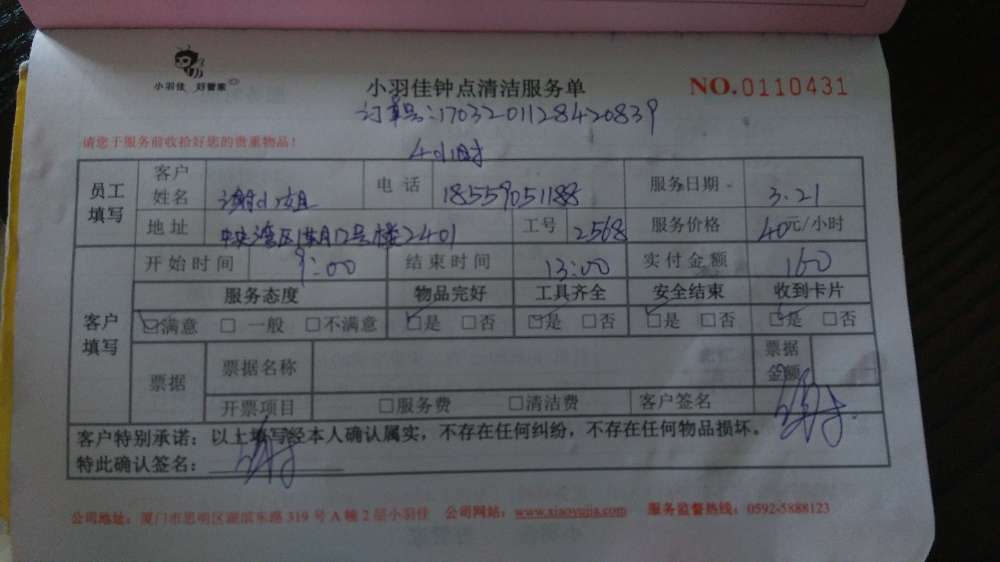 小羽佳 好管家
小羽佳钟点清洁服务单
NO.0110431
订单号:1703201128420839
请您于服务前收拾好您的贵重物品！
4小时
员工填写
客户姓名 谢小姐 电话 18559051188 服务日期 3.21
地址 中央湾区 12号楼2401 工号 2568 服务价格 40元/小时
客户填写
开始时间 9:00 结束时间 13:00 实付金额 160
服务态度 物品完好 工具齐全 安全结束 收到卡片
☑满意 □一般 □不满意 ☑是 □否 ☑是 □否 ☑是 □否 ☑是 □否
票据 票据名称 票据金额
开票项目 □服务费 □清洁费 客户签名 谢
客户特别承诺：以上填写经本人确认属实，不存在任何纠纷，不存在任何物品损坏。
特此确认签名：谢
公司地址：厦门市思明区湖滨东路319号A幢2层小羽佳 公司网站：www.xiaoyujia.com 服务监督热线：0592-5888123